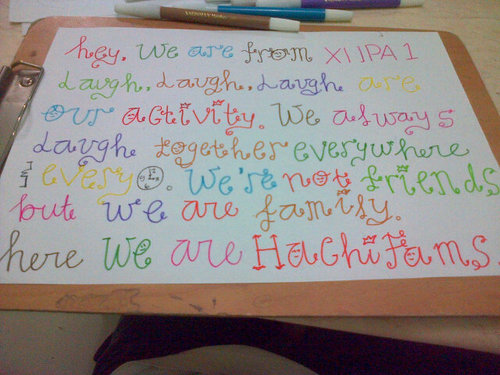 hey, We are from XI IPA 1
Laugh, Laugh, Laugh are
our activity. We always
Laugh together everywhere
& every. We're not friends
but we are family.
here We are HachiFams.